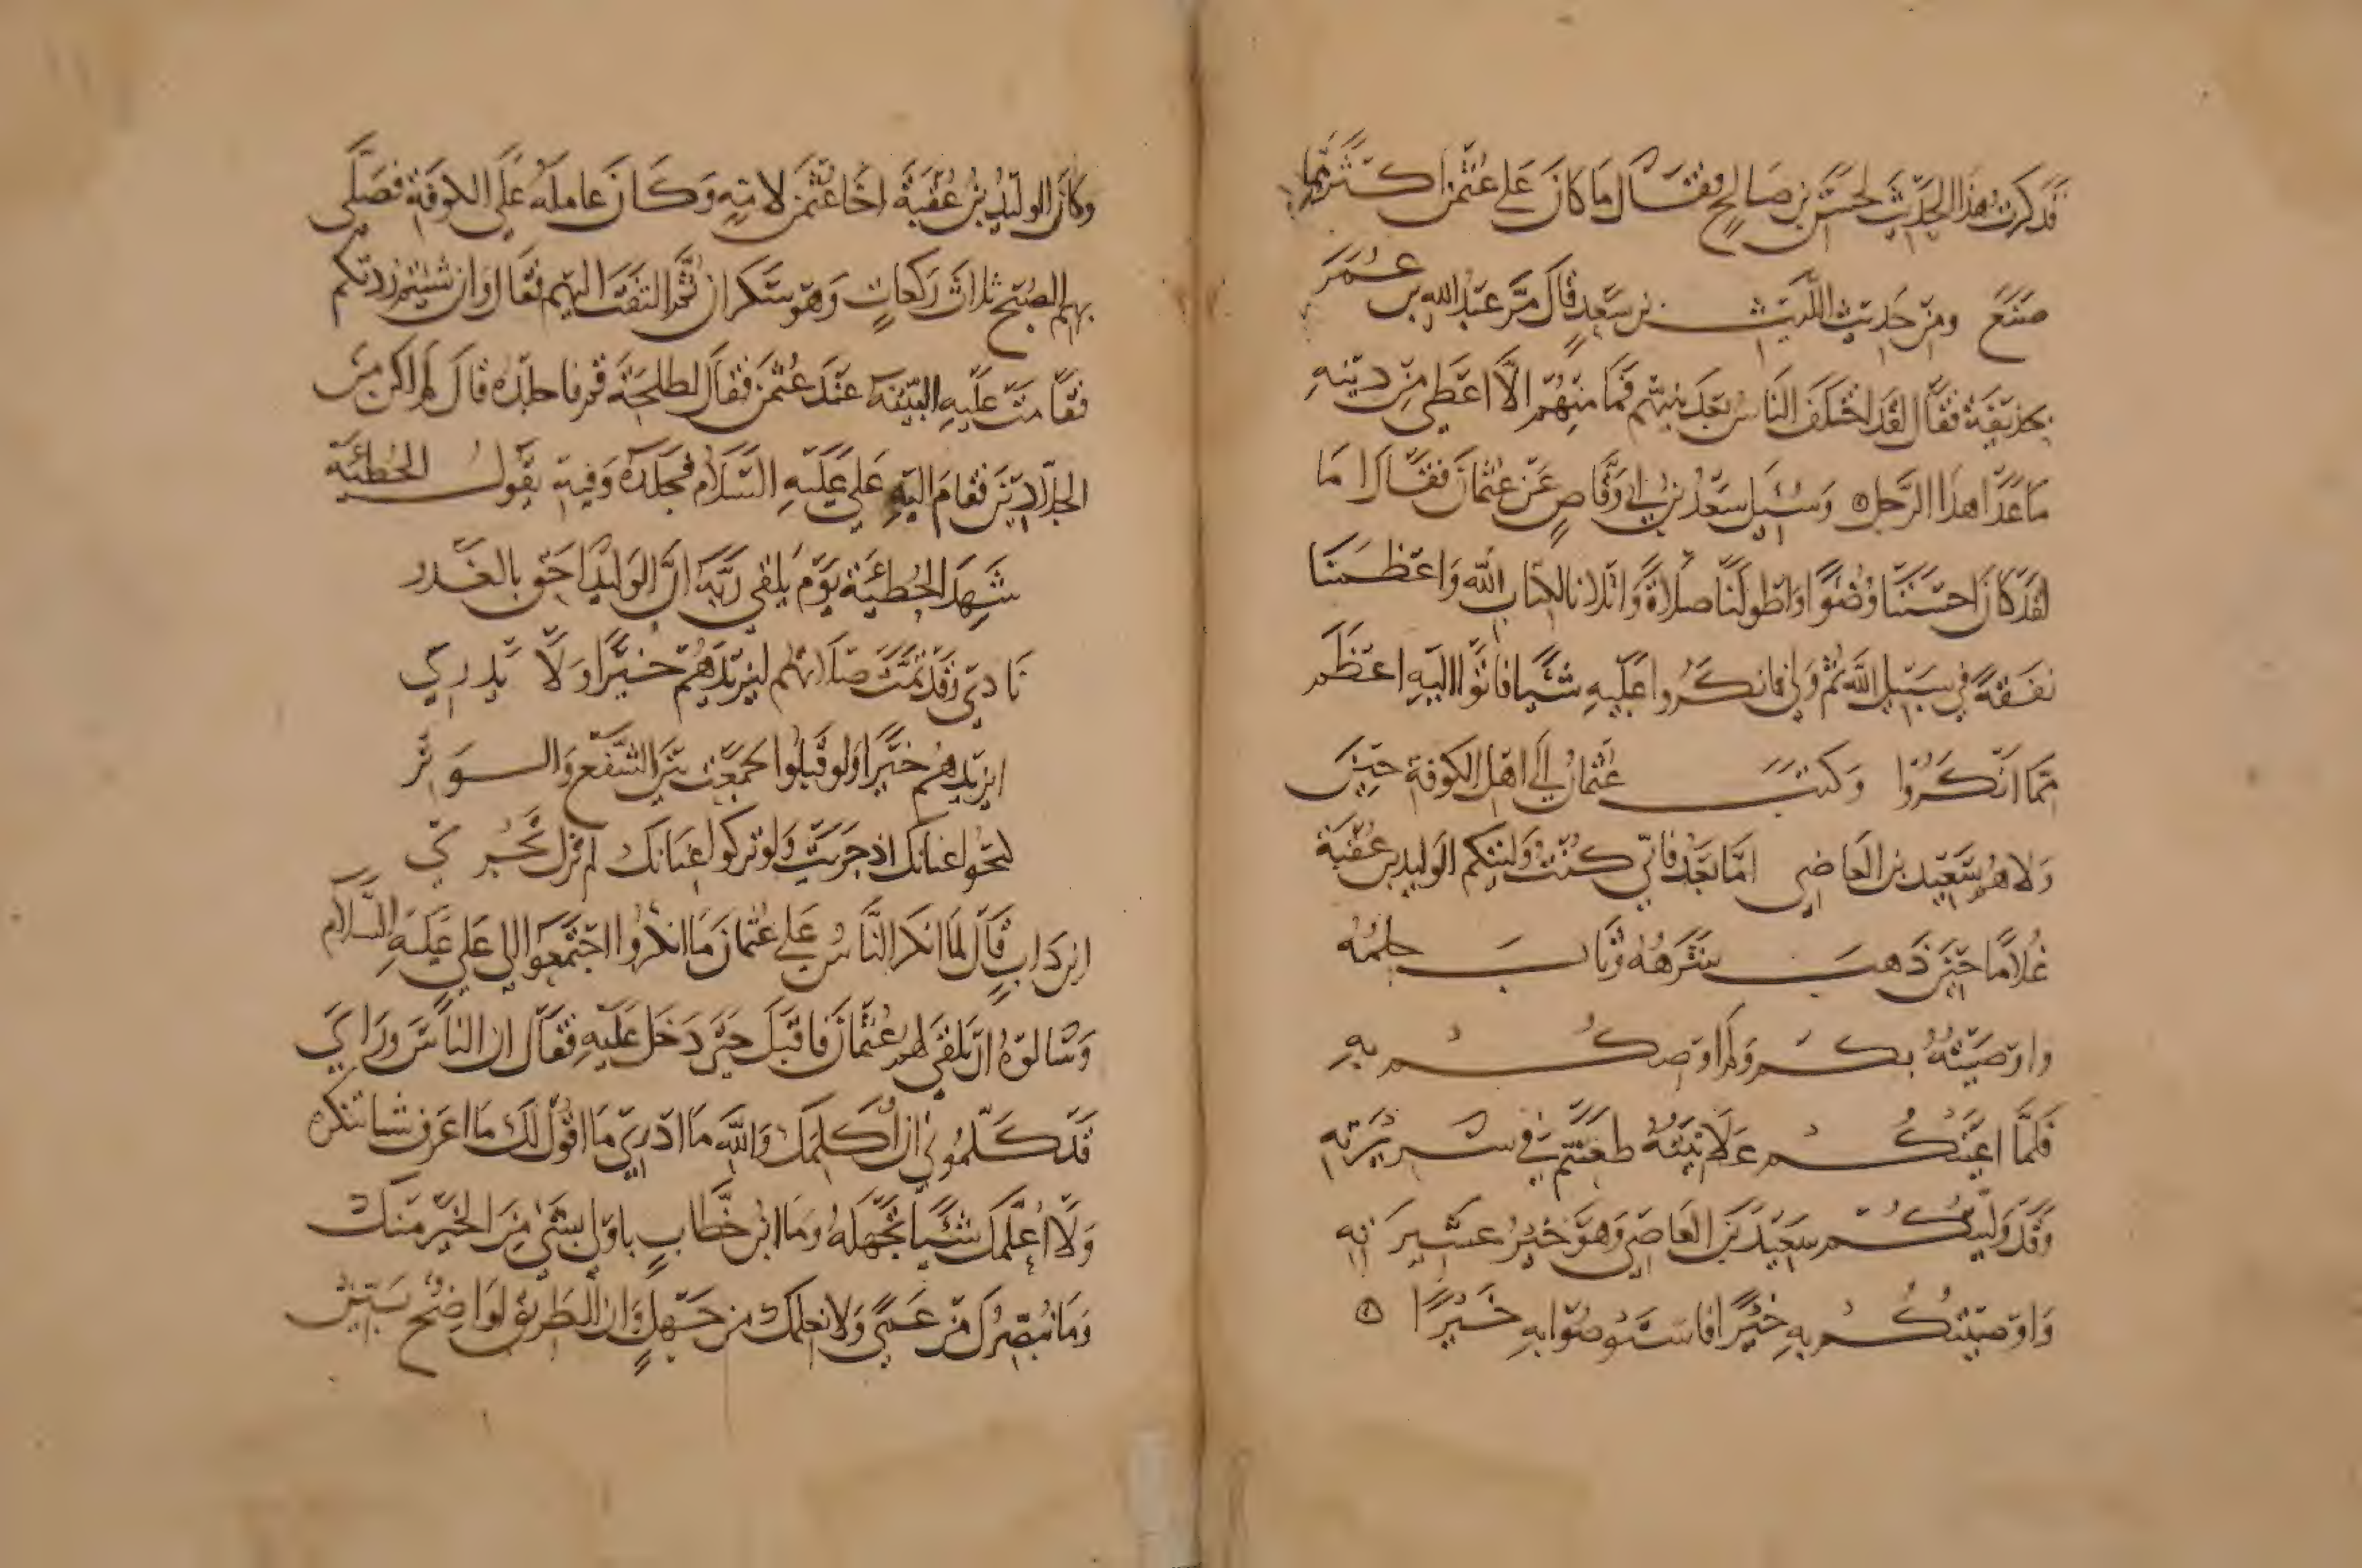 فذكرت هذا الحديث لحسن بن صالح فقال ما كان على عثمن اكثر مما
صنع ومن حديث الليث بن سعد قال مر عبد الله بن عمر
بحذيفة فقال لقد اختلف الناس بعد نبيهم فما منهم الا اعطى من دينه
ما عدا هذا الرجل وسئيل سعد بن ابي وقاص عن عثمان فقال اما
لقد كان احسننا وضوا واطولنا صلاة واتلانا لكتاب الله واعظمنا
نفقة في سبيل الله ثم ولي فانكروا عليه شيا فاتوا اليه اعظم
مما انكروا وكتب عثمان الى اهل الكوفة حين
ولاهم سعيد بن العاصي اما بعد فاني كنت وليتكم الوليد بن عقبة
غلاما حين ذهب شرهه وثاب حلمه
واوصيته بكم ولم اوصكم به
فلما اعيتكم علانيته طعنتم في سريرته
وقد وليتكم سعيد بن العاصي وهو خير عشيرته
واوصيتكم به خيرا فاستوصوا به خيرا
وكان الوليد بن عقبة اخا عثمن لامه وكان عامله على الكوفة فصلى
بهم الصبح ثلاث ركعات وهو سكران ثم التفت اليهم فقال وان شيتم زدتكم
فقامت عليه البينة عند عثمن فقال لطلحة قم فاجلده قال لم اكن من
الجلادين فقام اليه علي عليه السلام فجلده وفيه يقول الحطئية
شهد الحطئية يوم يلقى ربه ان الوليد احق بالغدر
نادى وقد تمت صلاتهم ليزيدهم خيرا ولا يدري
ليزيدهم خيرا ولو قبلوا لجمعت بين الشفع والوتر
لحوا عنانك اذ جريت ولو تركوا عنانك لم تزل تجري
ابن داب قال لما انكر الناس على عثمان ما انكروا اجتمعوا الى علي عليه السلام
وسالوه ان يلقى لهم عثمان فاقبل حتى دخل عليه فقال ان الناس وراي
قد كلموني ان اكلمك والله ما ادري ما اقول لك ما اعرف شيا تنكره
ولا اعلمك شيا تجهله وما ابن خطاب باولى بشي من الخير منك
وما نبصرك من عمى ولا نعلمك من جهل وان الطريق لواضح بين